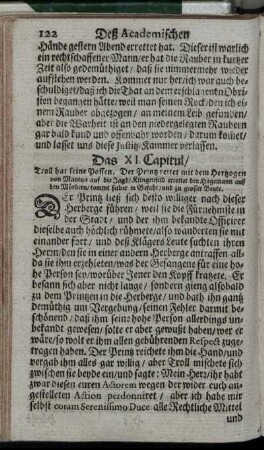 122 Deß Academischen
Hände gestern Abend errettet hat. Dieser ist warlich
ein rechtschaffener Mann / er hat die Räuber in kurtzer
Zeit also gedemüthiget / daß sie nimmermehr wieder
aufstehen werden. Kommet nur her / ich war auch be-
schuldiget / daß ich die That an dem erschlagenen Obri-
sten begangen hätte / weil man seinen Rock / den ich ei-
nem Räuber abgezogen / an meinem Leib gefunden /
aber die Warheit ist an den niedergelegten Räubern
gar bald kund und offenbahr worden / darum kommet /
und lasset uns diese Justitz-Kammer verlassen.
Das XI. Capitul /
Troll hat seine Possen. Der Printz reitet mit dem Hertzogen
von Mantua auf die Jagd / Klingenfeld errettet den Hagemann auf
den Mördern / kommt selber in Gefahr / und zu grosser Beute.
DEr Printz ließ sich desto williger nach dieser
Herberge führen / weil sie die Fürnehmste in
der Stadt / und der ihn bekandte Officirer
dieselbe auch höchlich rühmete / also wanderten sie mit
einander fort / und deß Klägers Leute suchten ihren
Herrn / den sie in einer andern Herberge antraffen / all-
da sie ihm ergehleten / was der Gefangene für eine ho-
he Person sey / worüber Jener den Kopff kratzete. Er
besann sich aber nicht lange / sondern gieng alsobald
zu dem Printzen in die Herberge / und bath ihn gantz
demüthig um Vergebung / seinen Fehler darmit be-
schönend / daß ihm seine hohe Person allerdings un-
bekandt gewesen / solte er aber gewußt haben / wer er
wäre / so wolt er ihm allen gebührenden Respect zuge-
tragen haben. Der Printz reichete ihm die Hand / und
vergab ihm alles gar willig / aber Troll mischete sich
zwischen sie beyde ein / und sagte: Mein Herr / ihr habt
zwar diesen euren Actorem wegen der wider euch an-
gestelleten Action perdonniret / aber ich habe mir
selbst coram Serenissimo Duce alle Rechtliche Mittel
und